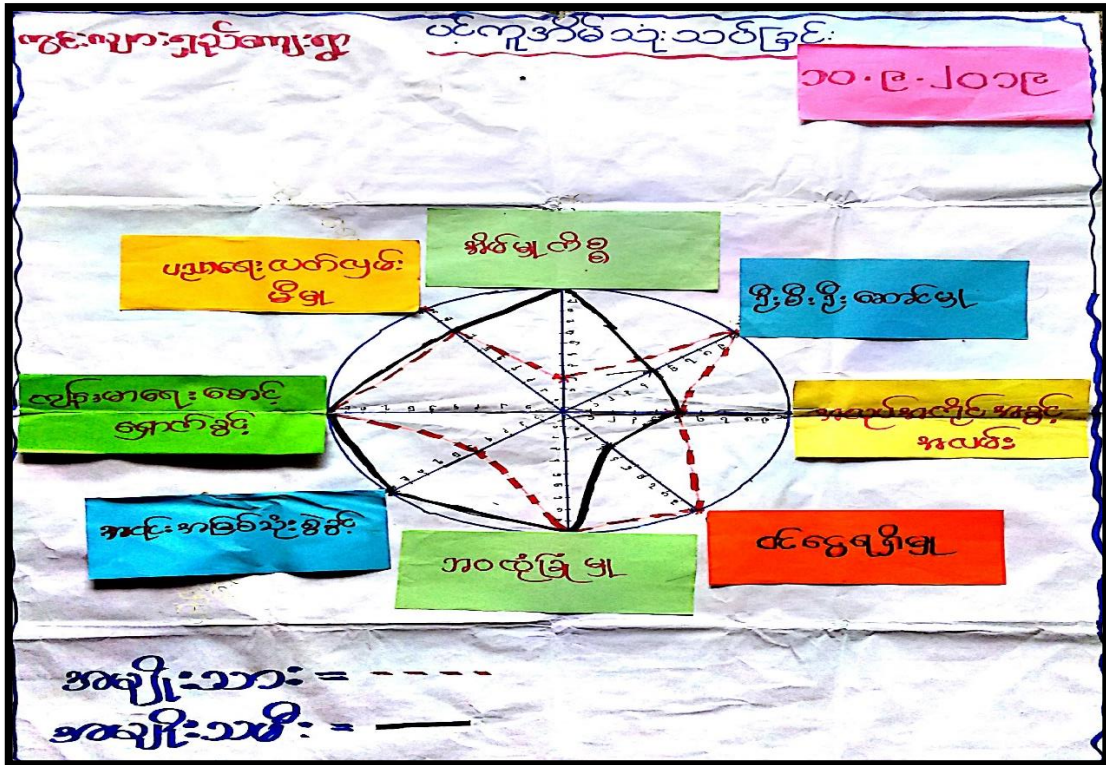 ကွင်းလျားရှည်ကျေးရွာ
ပင့်ကူအိမ်သုံးသပ်ခြင်း
၁၀.၉.၂၀၁၉
အိမ်မှုကိစ္စ
ပညာရေးလတ်လှမ်း
မီမှု
ဦးစီးဦးဆောင်မှု
ကျန်းမာရေးစောင့်
ရှောက်ခွင့်
အလုပ်အကိုင်အခွင့်
အလမ်း
အရင်းအမြစ်သုံးစွဲခွင့်
ဘဝလုံခြုံမှု
ဝင်ငွေရရှိမှု
အမျိုးသား =
အမျိုးသမီး =